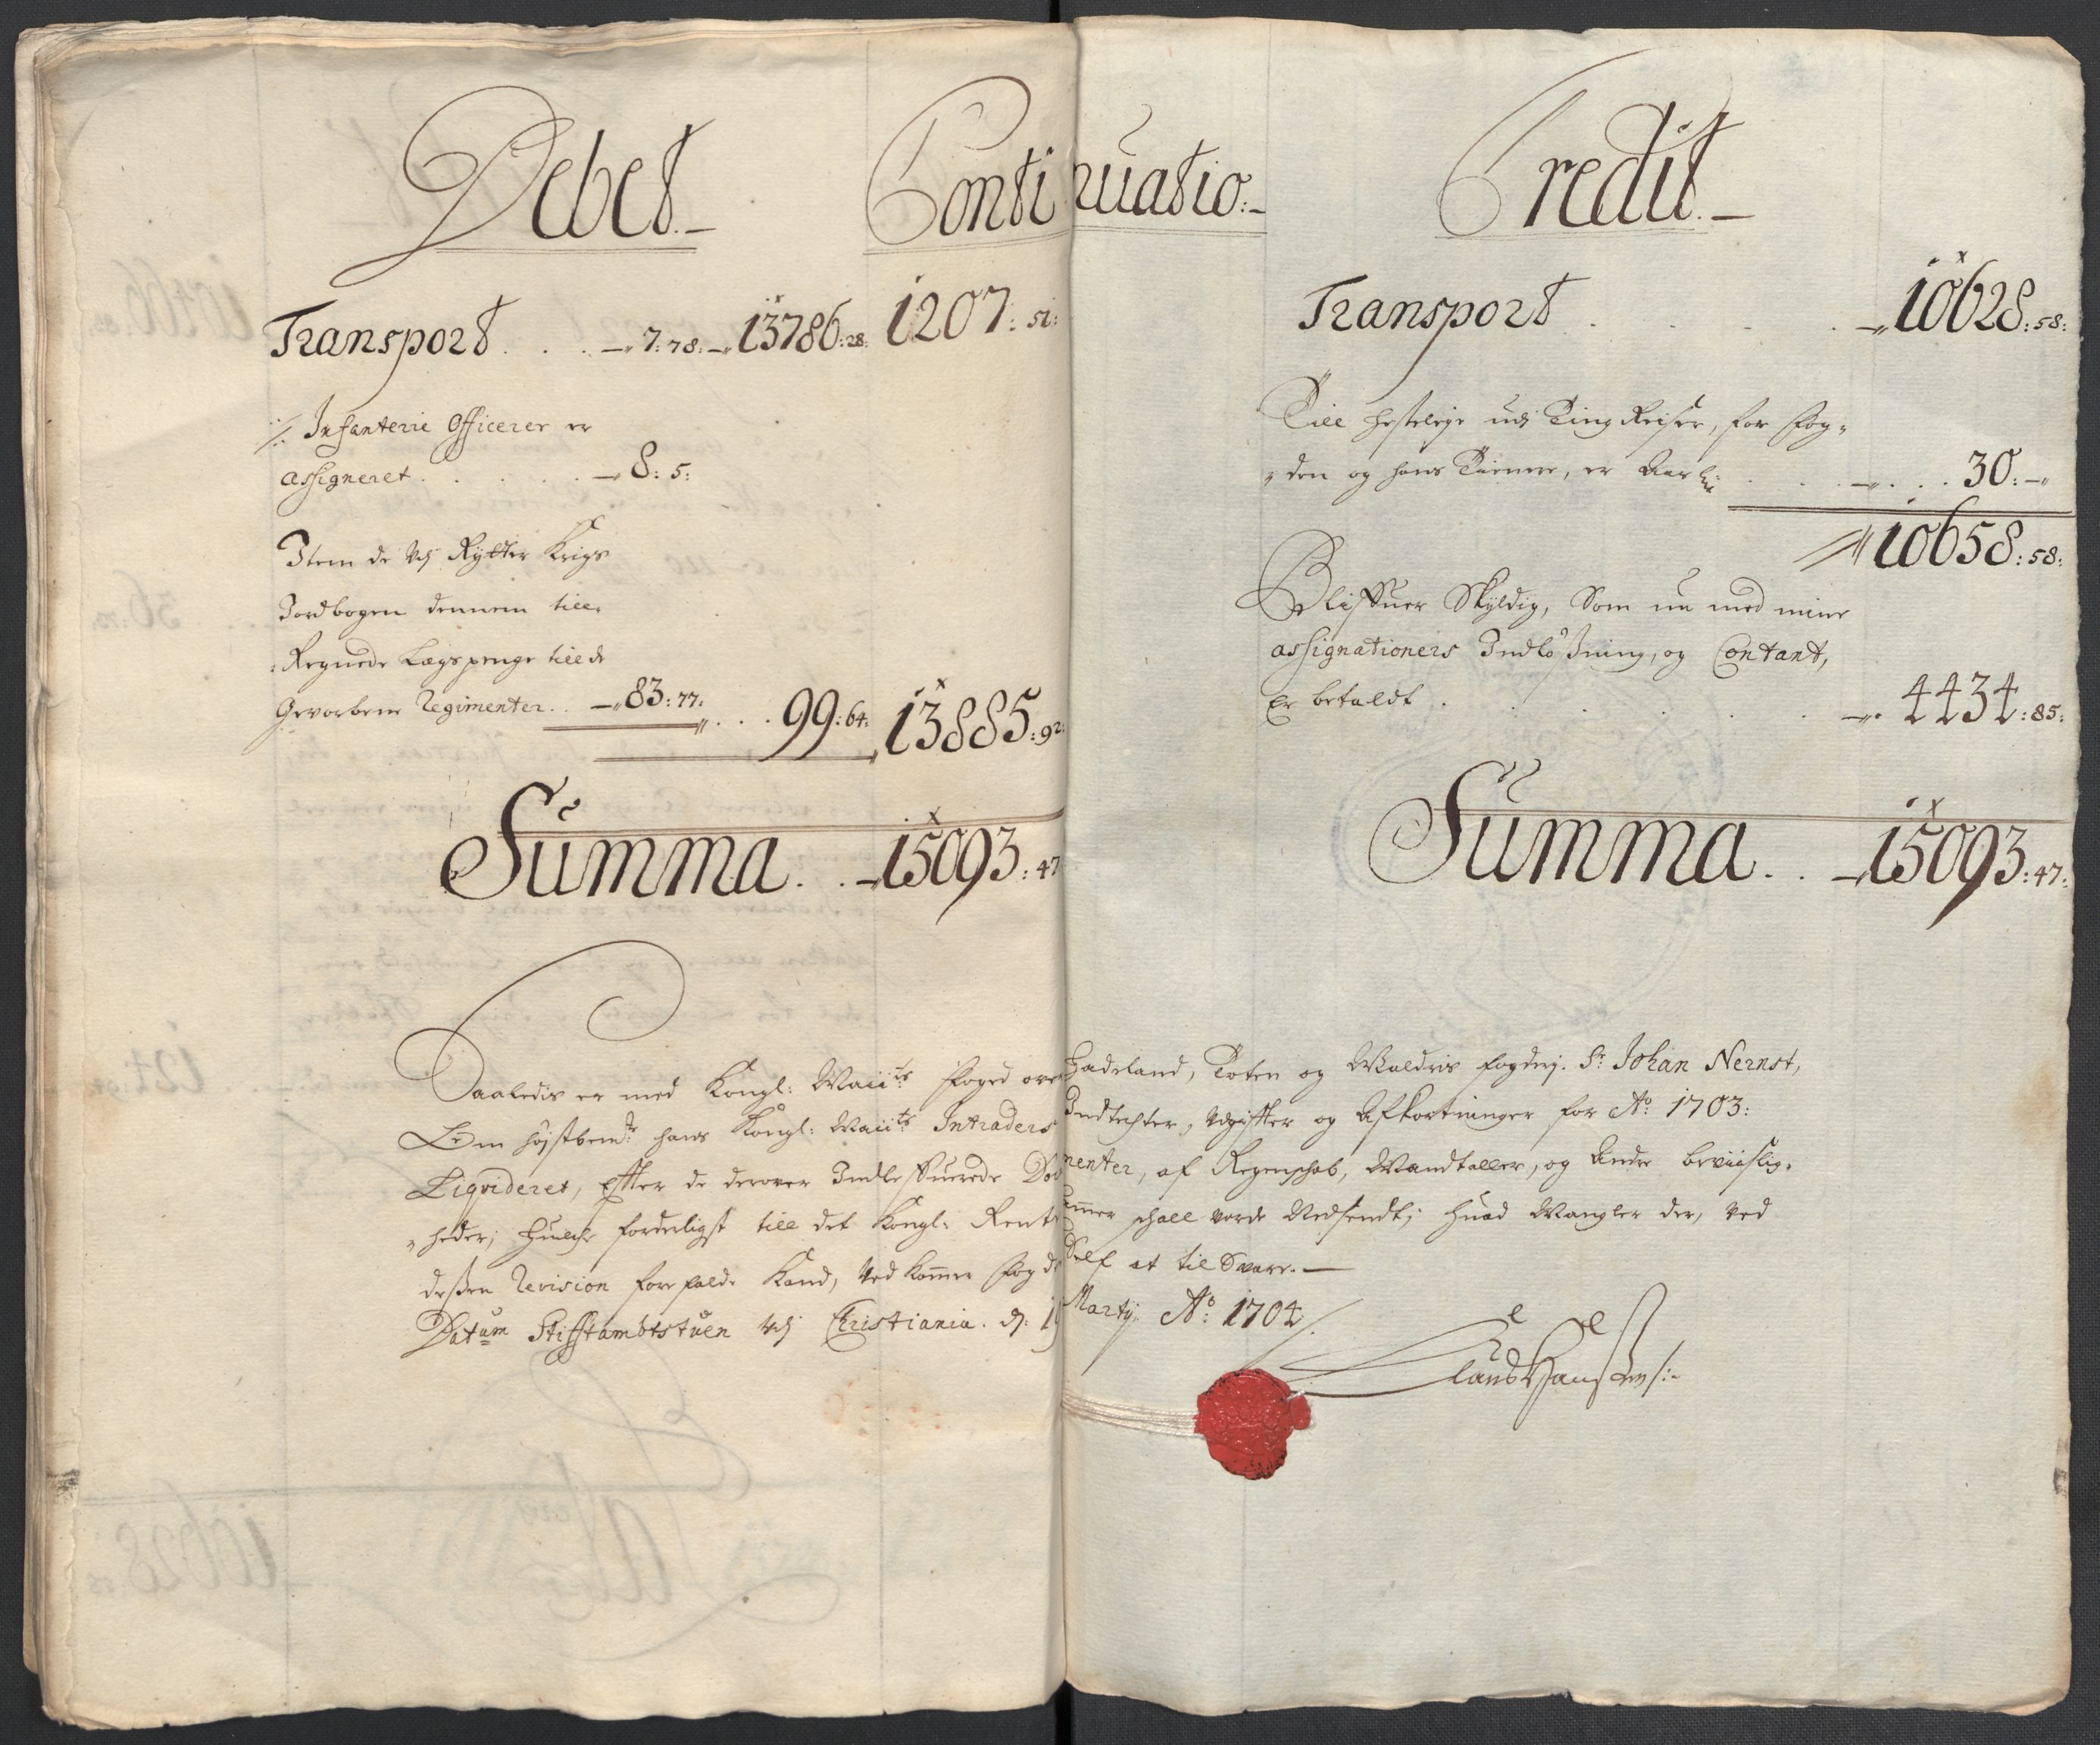 Debet.
Continuatio:
Transport . . . 7: 78. 13786: 28. 1207: 51:
Infanterie Officerer er
assigneret . . . . . 8: 5:
Item de udj Rytter Krigs
Jordbogen dennem till
Regnede Lægspenge till de
Geworbene Regimenter . . 83: 77. . . . 99: 64. 13885: 92.
Summa . . 15093: 47
Credit.
Transport . . . . 10628: 58:
Till hestleye udj Ting Reiser, for Fog-
den og hans Tienere, er Aarl: . . . . . 30:
10658: 58:
Bliffuer Skyldig, Som nu med mine
assignationers Indløsning, og Contant,
Er betaldt . . . . . . 4434: 85:
Summa . . 15093: 47:
Saaledis er med Kongl: Maiits Foged over Hadeland, Toten og Waldris fogderj. Sr: Johan Nernst,
Om høistbemte hans Kongl: Maiits Intraders Indtechter, Udgifter og Afkortninger for Ao: 1703:
Liqvideret, efter de derover Indleffuerede Documenter, af Regenschab, Mandtaller, og Andre beviislig-
heder; Huilche forderligst till det Kongl: Rente Cammer schall vorde Nedsendt; Huad Mangler der, ved
dessen Revision forefalde Kand, Vedkommer Fogden Self at til Svare.
Datum Stifftambtstuen udj Christiania. d: 19 Martij Ao: 1704
Claus Hansen